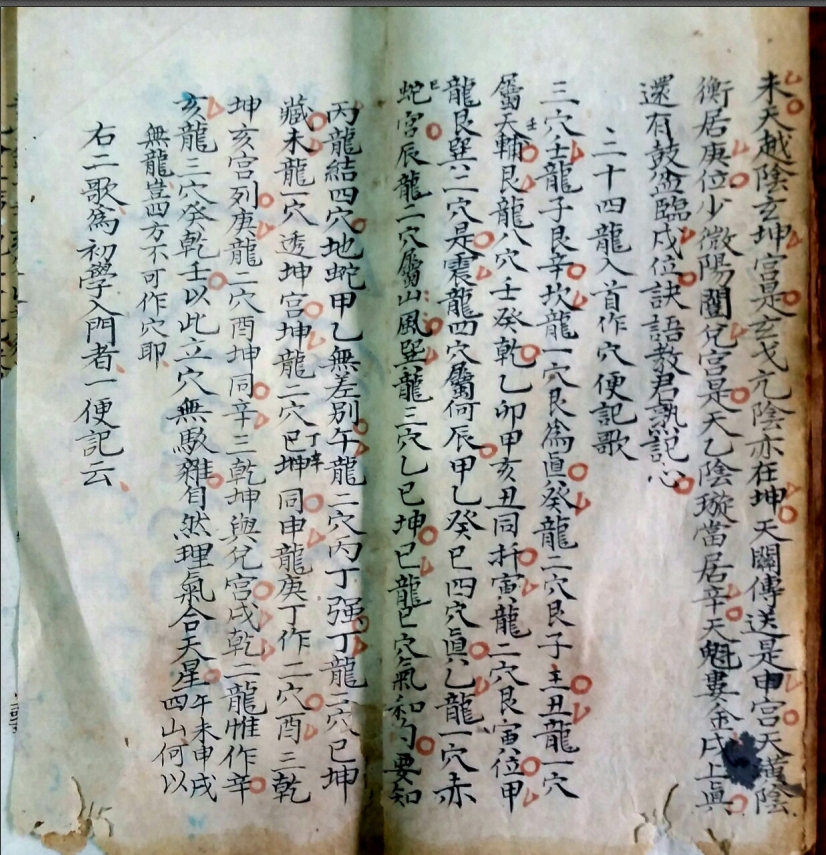 未天越陰玄坤宮是玄戈亢陰亦在坤天關傳送是申宮天潢陰
衡居庚位少微陽闔兌宮是天乙陰璇當居辛天魁婁金戌上真
還有鼓盆臨戌位訣語教君熟記心
二十四龍入首作穴便記歌
三穴壬龍子艮辛坎龍一穴艮為真癸龍二穴艮子壬丑龍一穴
屬天輔艮龍八穴壬癸乾乙卯甲亥丑同扦寅龍二穴艮寅位甲
龍艮巽二穴是震龍四穴屬何辰甲乙癸巳四穴真乙龍一穴赤
蛇宮辰龍一穴屬山風巽龍三穴乙巳坤巳龍巳穴氣和勻要知
丙龍結四穴地蛇甲乙無差別午龍二穴丙丁强丁龍三穴巳坤
藏未龍一穴透坤宮坤龍二穴巳坤同申龍庚丁作二穴酉三乾
坤亥宮列庚龍二穴酉坤同辛三乾坤與兌宮戌乾二龍惟作辛
亥龍三穴癸乾壬以此立穴無駁雜自然理氣合天星午未申戌四山何以
無龍豈四方不可作穴耶
右二歌為初學入門者一便記云